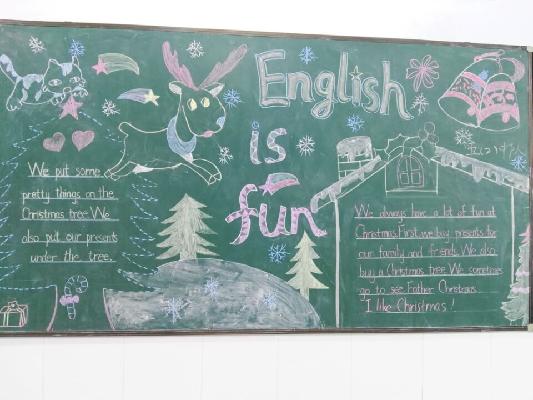 English
is
fun
We put some
pretty things on the
Christmas tree. We
also put our presents
under the tree.
We always have a lot of fun at
Christmas. First we buy presents for
our family and friends. We also
buy a Christmas tree. We sometimes
go to see Father Christmas.
I like Christmas!